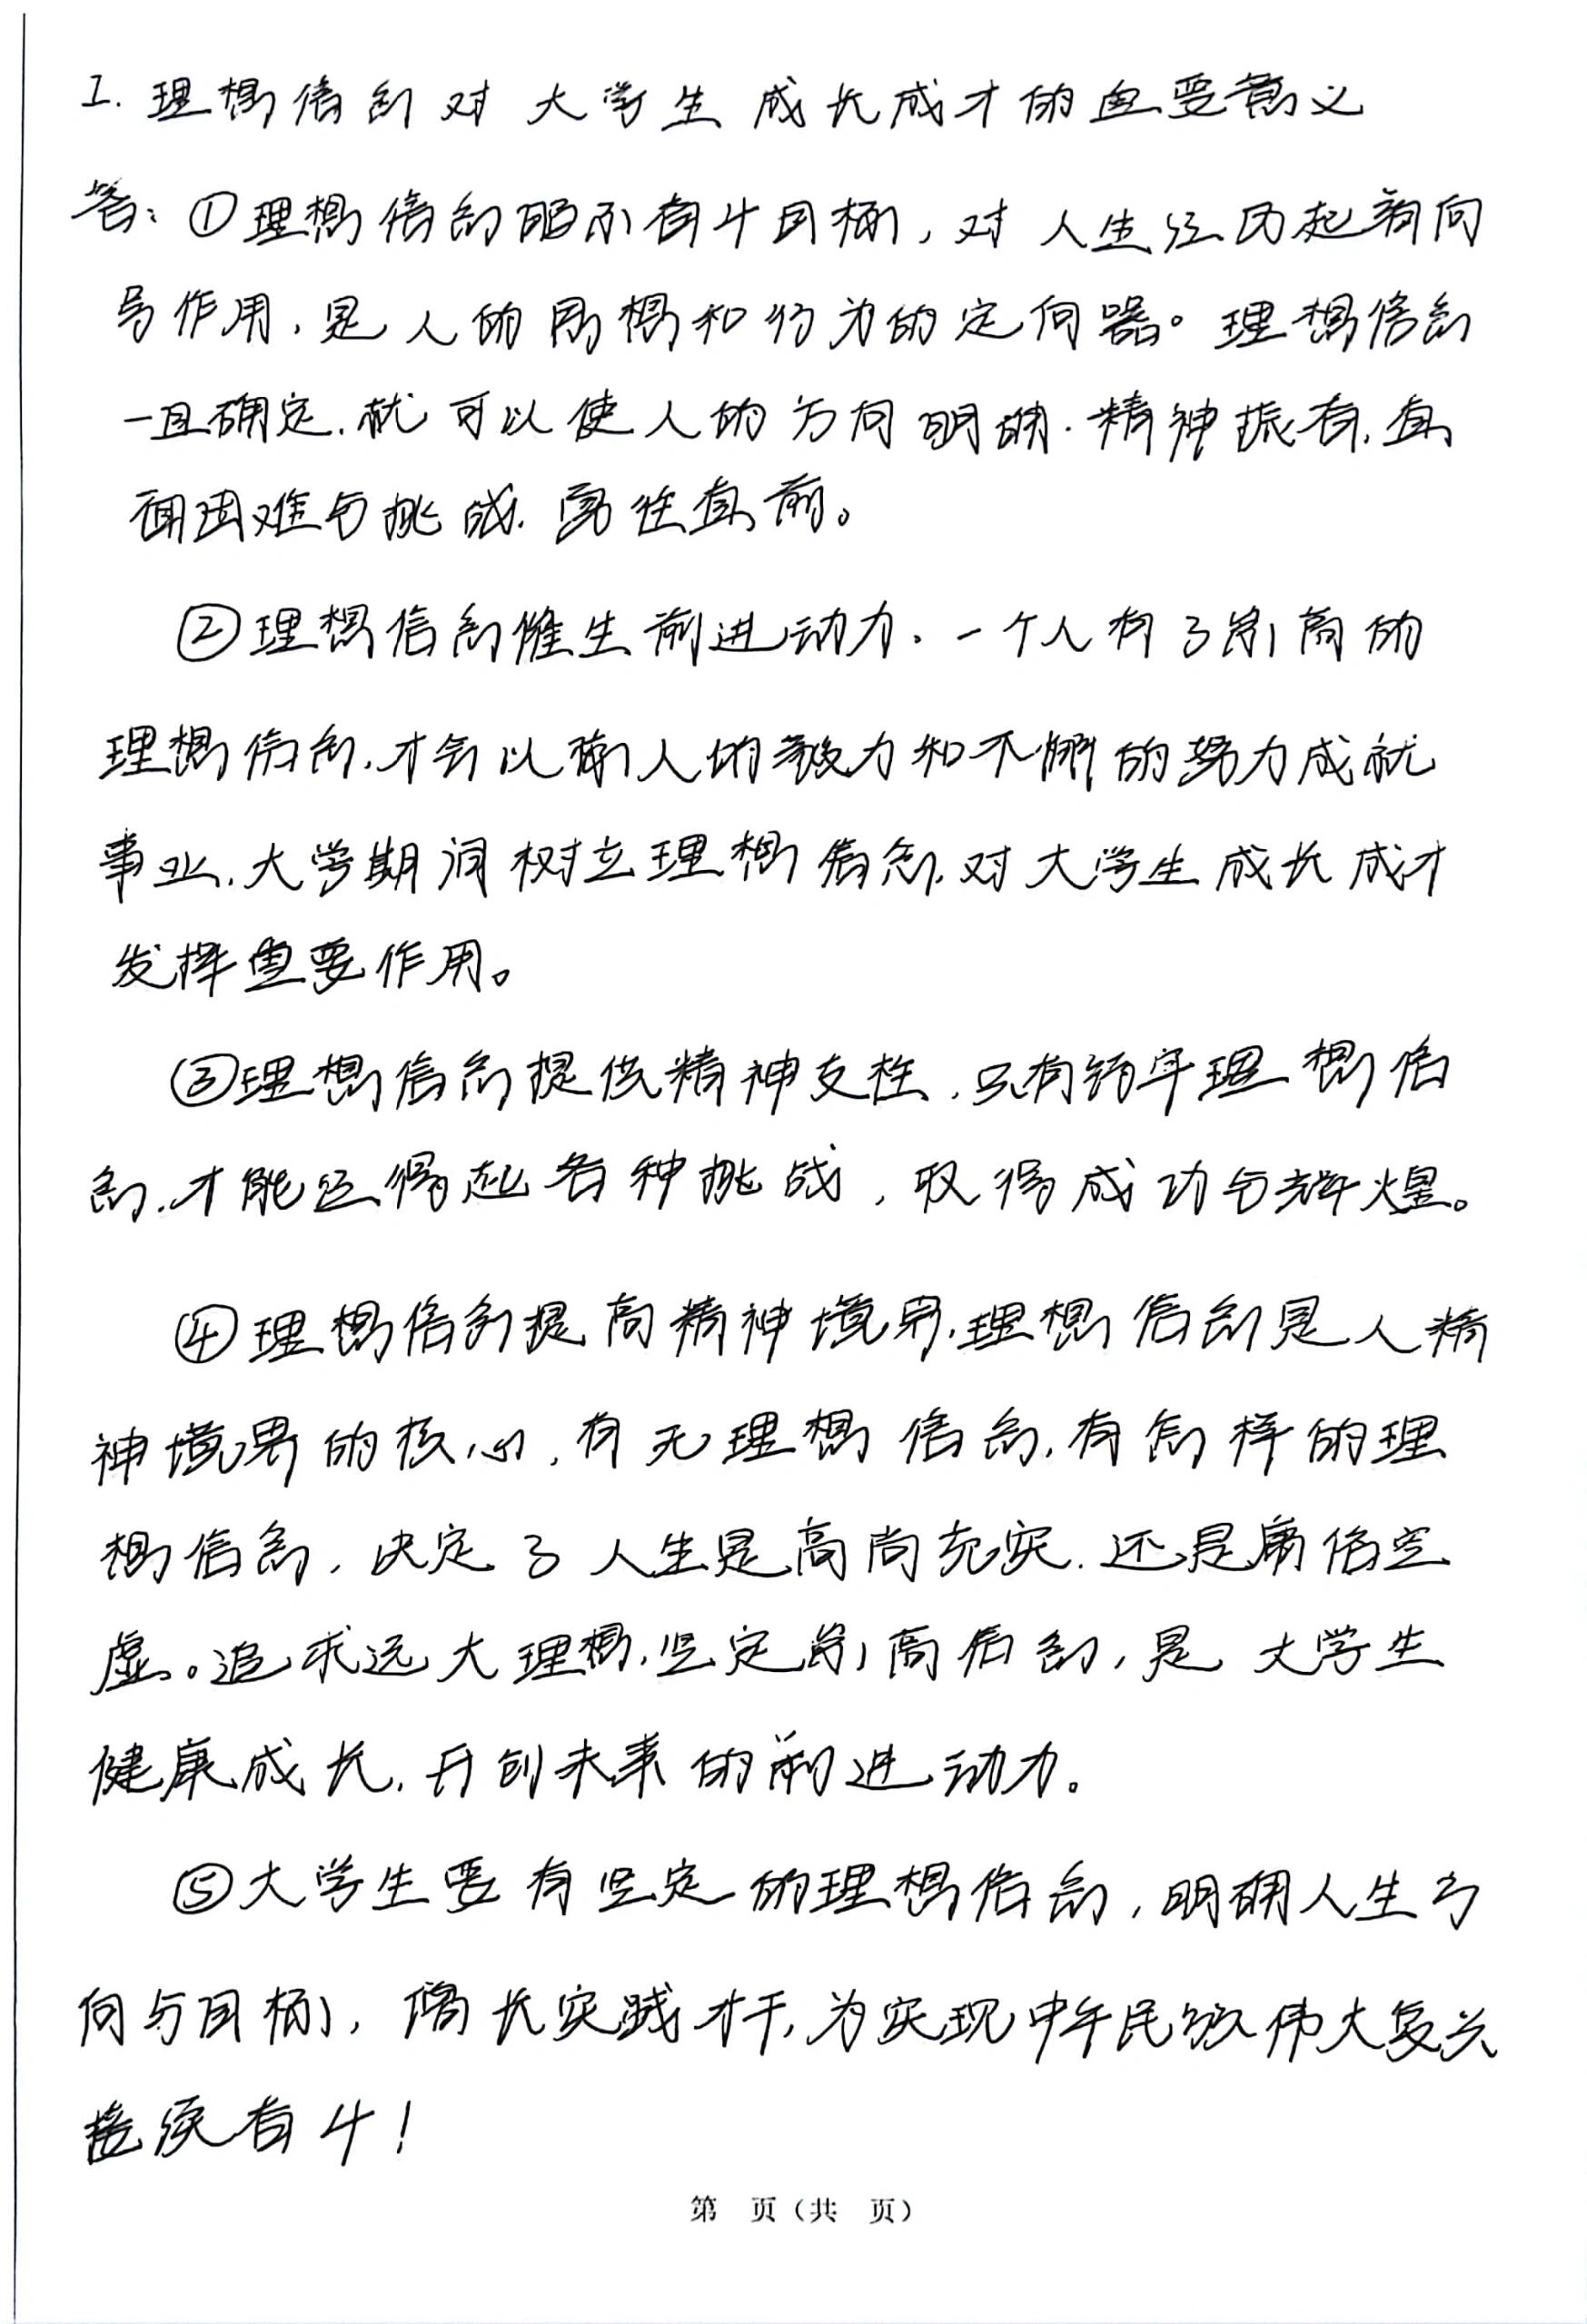 1. 理想信念对大学生成长成才的重要意义
答：①理想信念昭示奋斗目标，对人生经历起着向
导作用，是人的思想和行为的定向器。理想信念
一旦确定，就可以使人的方向明确，精神振奋，直
面困难与挑战，勇往直前。
②理想信念催生前进动力。一个人有了崇高的
理想信念，才会以惊人的毅力和不懈的努力成就
事业，大学期间树立理想信念，对大学生成长成才
发挥重要作用。
③理想信念提供精神支柱，只有铸牢理想信
念，才能经得起各种挑战，取得成功与辉煌。
④理想信念提高精神境界，理想信念是人精
神境界的核心，有无理想信念，有怎样的理
想信念，决定了人生是高尚充实，还是庸俗空
虚。追求远大理想，坚定崇高信念，是大学生
健康成长，开创未来的前进动力。
⑤大学生要有坚定的理想信念，明确人生方
向与目标，增长实践才干，为实现中华民族伟大复兴
接续奋斗！
第 页（共 页）